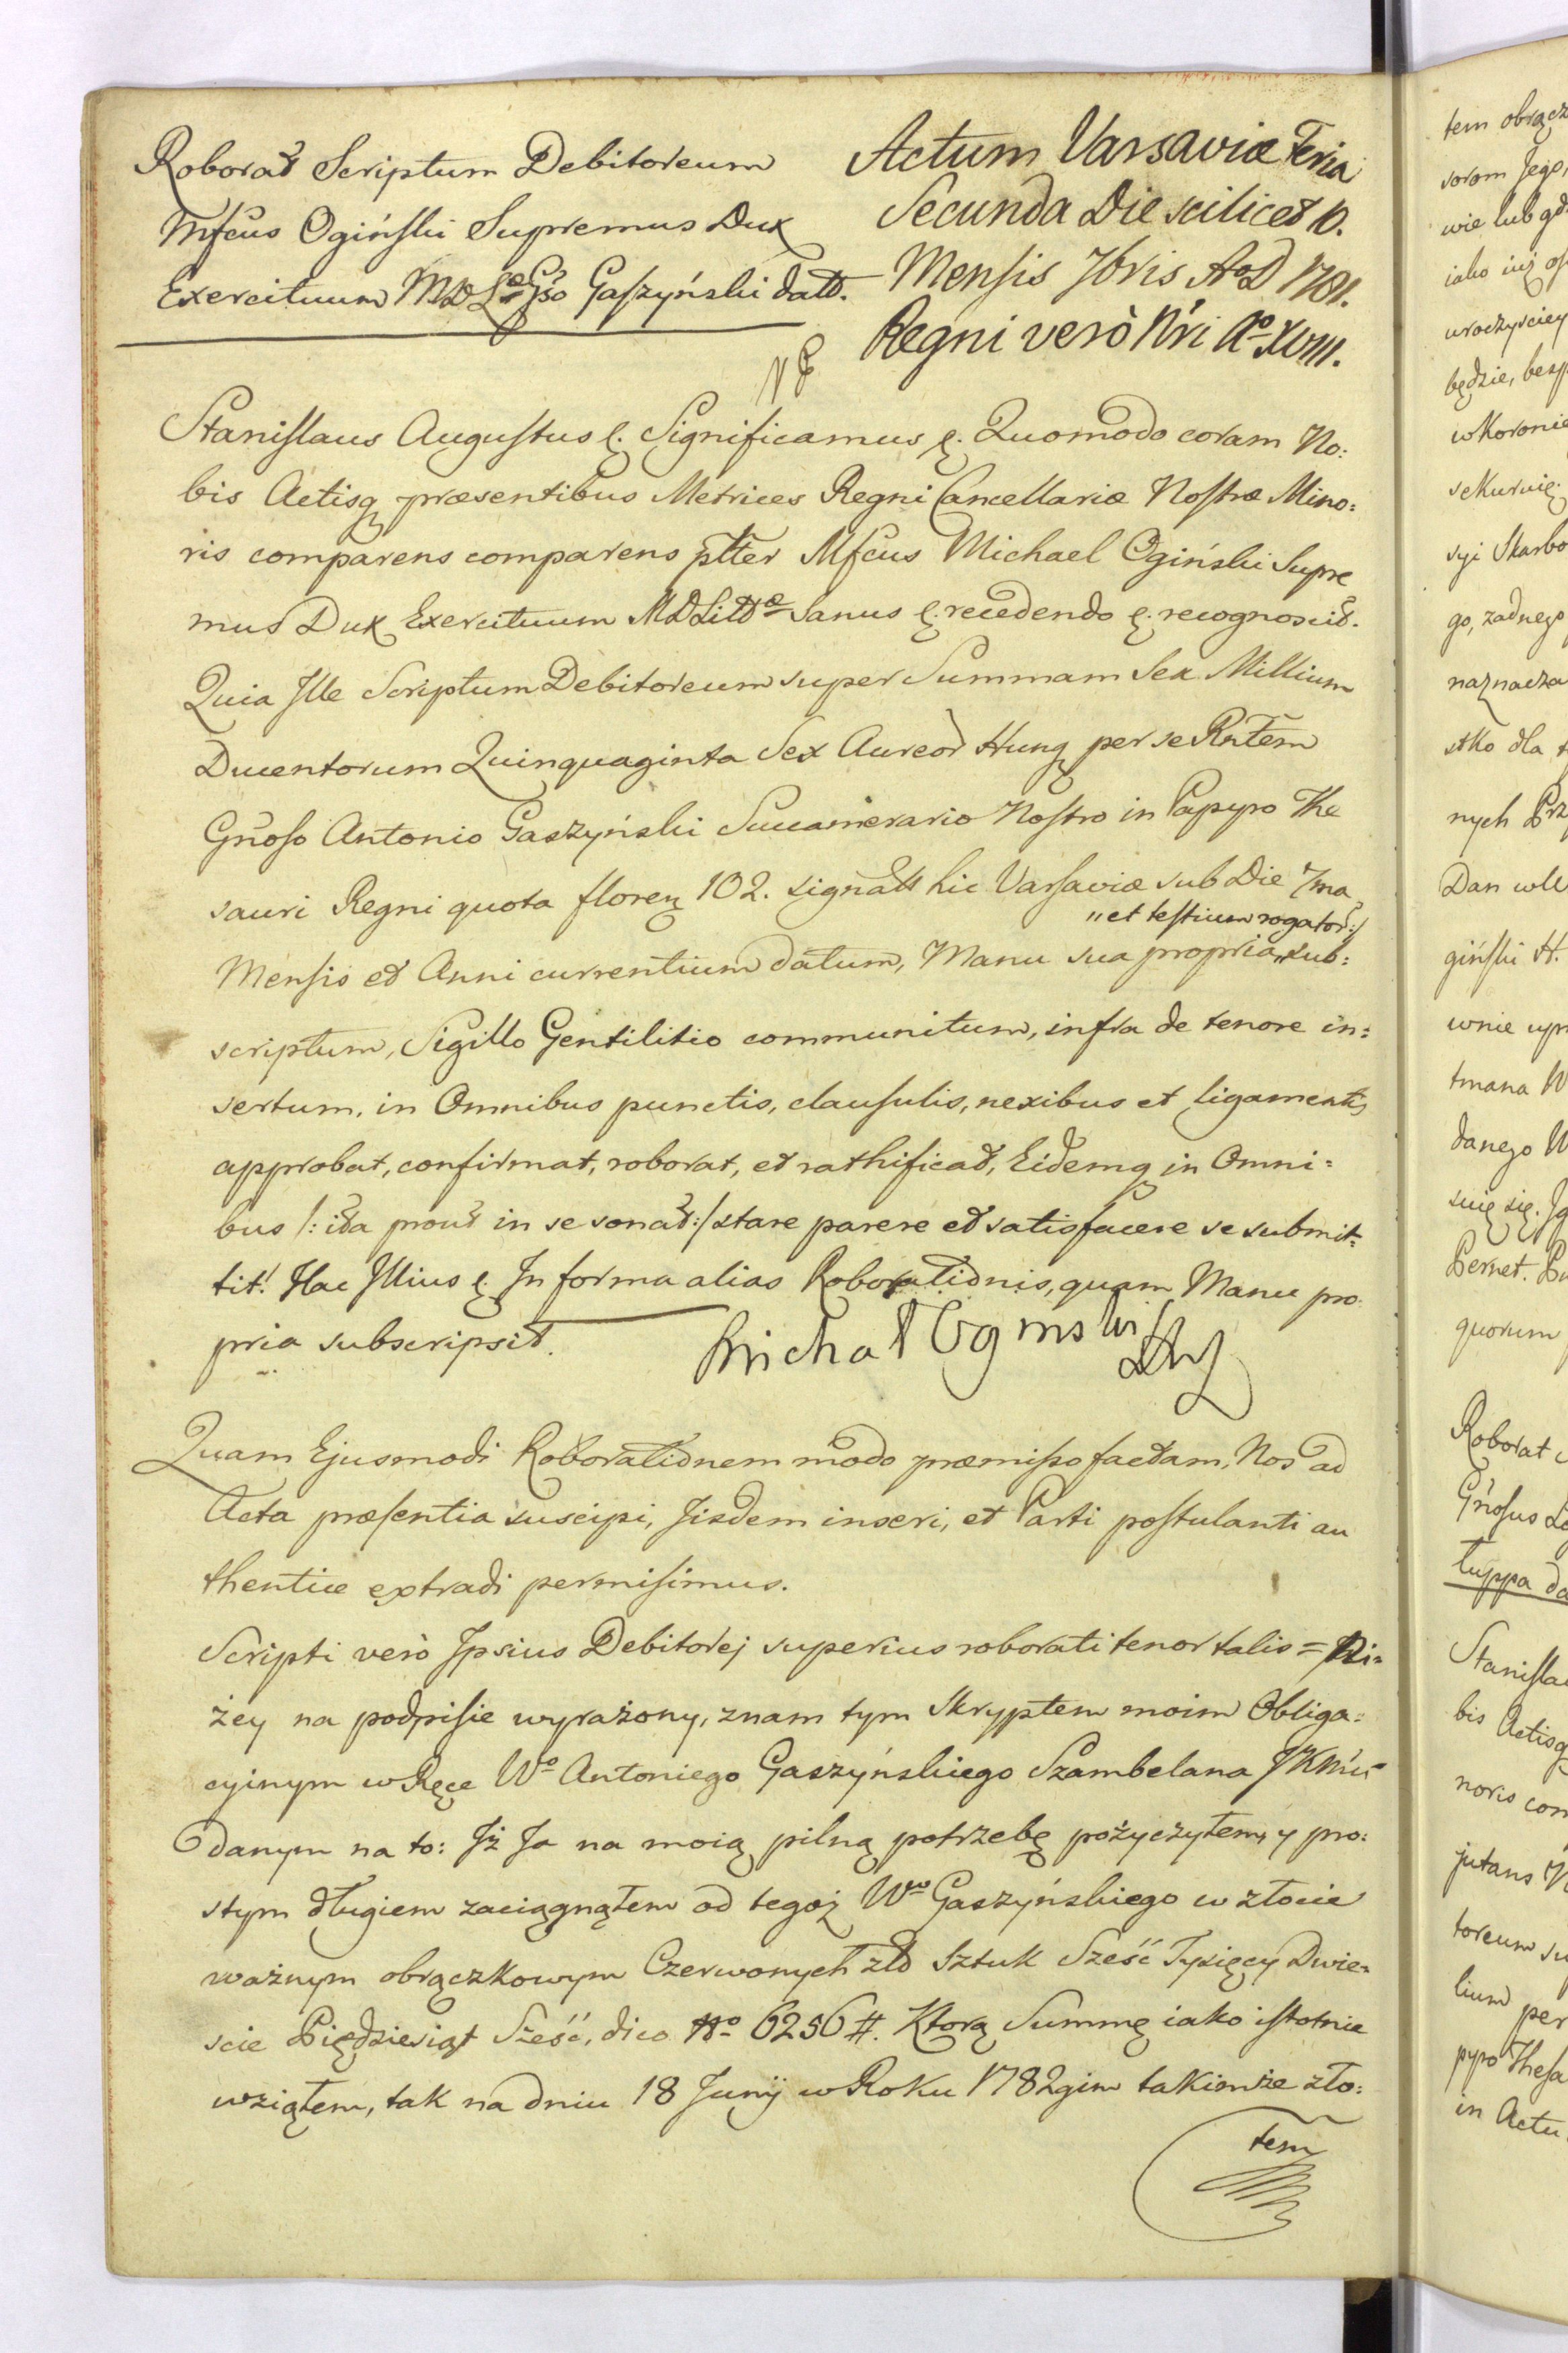 Roborat Scriptum Debitoreum
Mfcus Ogiński Supremus Dux
Exercituum MDLæ Gso Gaszyński datt.
Actum Varsaviæ Feria
Secunda Die scilicet 10.
Mensis 7bris AoD 1781.
Regni verò Nri Ao XVIII.
Stanislaus Augustus &. Significamus &. Quomodo coram No:
bis Actisq præsentibus Metrices Regni Cancellariæ Nostræ Mino:
ris comparens comparens pltter Mfcus Michael Ogiński Supre
mus Dux Exercituum MDLittæ Sanus &. recedendo &. recognoscit.
Quia Jlle Scriptum Debitoreum super Summam Sex Millium
Ducentorum Quinquaginta Sex Aureor Hung per se Rntem
Gnoso Antonio Gaszyński Succamerario Nostro in Papyro The
sauri Regni quota floren 102. signatt hic Varsaviæ sub Die 7ma
"et testium rogator:/
Mensis et Anni currentium datum, Manu sua propria "sub:
scriptum, Sigillo Gentilitio communitum, infra de tenore in:
sertum, in Omnibus punctis, clausulis, nexibus et ligamentis
approbat, confirmat, roborat, et rathificat, Eidemq in Omni:
bus /: ita prout in se sonat:/ stare parere et satisfacere se submit:
tit! Hac Jllius &. Jn forma alias Roborationis, quam Manu pro
pria subscripsit.
Michał Oginski HWL
Quam Ejusmodi Roborationem modo præmisso factam, Nos ad
Acta præsentia suscipi, Jisdem inseri, et Parti postulanti au
thentice extradi permisimus.
Scripti verò Jpsius Debitorej superius roborati tenor talis = Ni:
żey na podpisie wyrażony, znam tym Skryptem moim Obliga:
cyinym w Ręce Wo Antoniego Gaszyńskiego Szambelana JKMci
danym na to: Jż Ja na moią pilną potrzebę pożyczyłem, y pro:
stym długiem zaciągnąłem od tegoż Wo Gaszyńskiego w złocie
ważnym obrączkowym Czerwonych złł Sztuk Sześć Tysięcy Dwie:
scie Pięćdziesiąt Sześć, dico No 6256 #. Ktorą Summę iako istotnie
wziąłem, tak na dniu 18 Junij w Roku 1782gim takimże zło:
tem
tem obrącz
sorom Jego,
wie lub gd
iako iuż
uroczyściey
będzie, besp
w Koronie
sekuruię.
syi Skarbo
go, zadnego
naznacza
stko dla
nych Prz
Dan w W
giński H.
wnie upr
tmana W
danego W
suię się. Jg
Bernet.
quorum
Roborat
Gnosus
tuppa da
Stanisla
bis Actisq
noris com
jutans
toreum su
lium per
pyro Thesa
in Actu